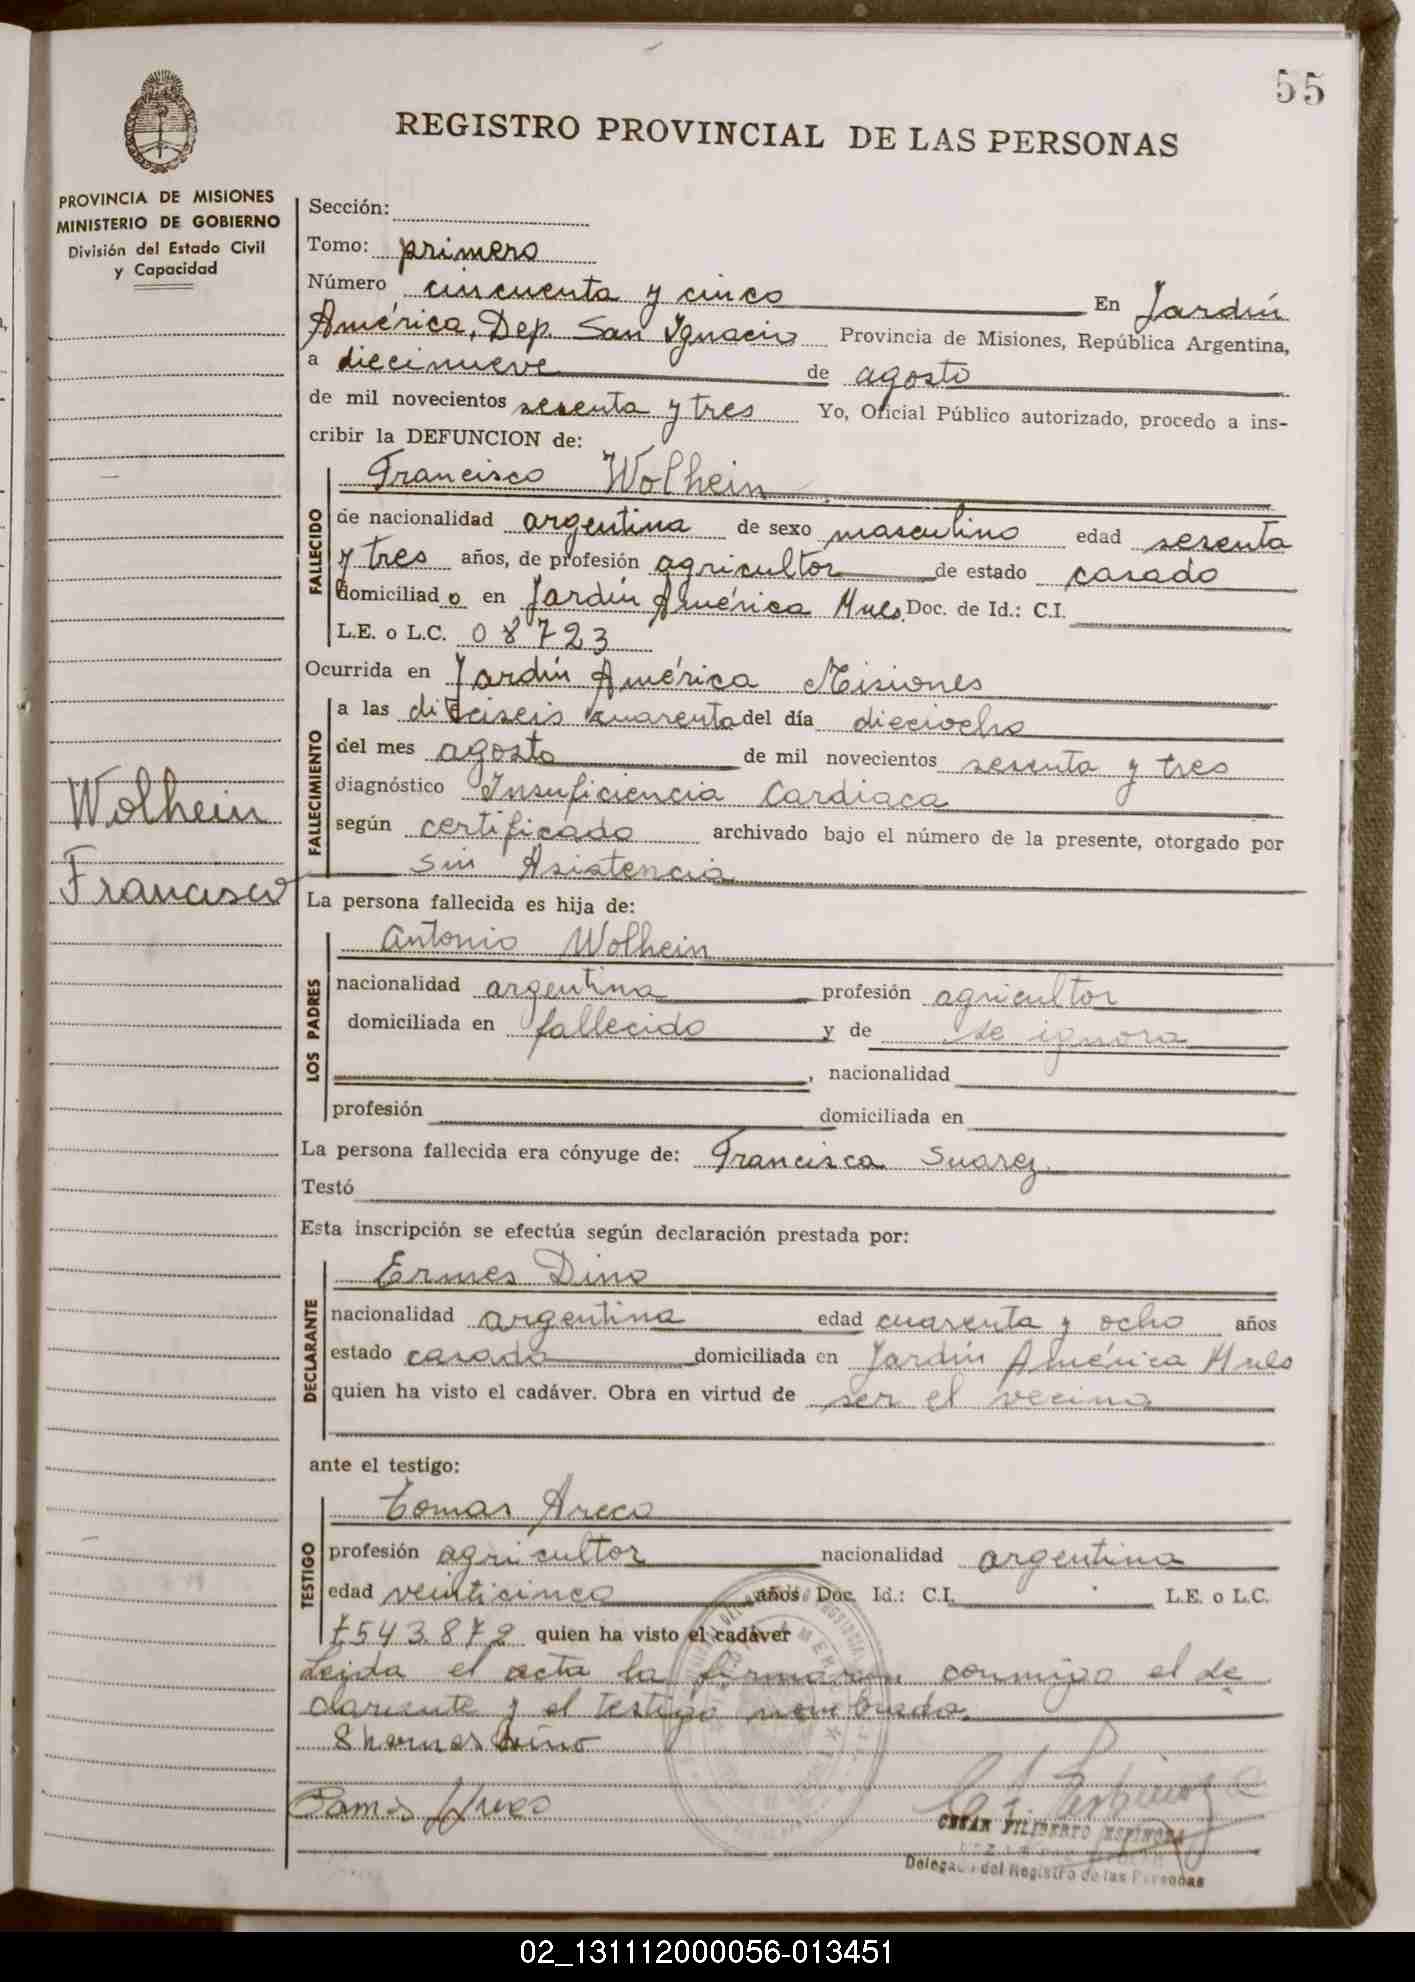 55
REGISTRO PROVINCIAL DE LAS PERSONAS
PROVINCIA DE MISIONES
MINISTERIO DE GOBIERNO
División del Estado Civil
y Capacidad
Wolhein
Francisco
Sección:
Tomo: primero
Número cincuenta y cinco En Jardín
América, Dep. San Ignacio Provincia de Misiones, República Argentina,
a diecinueve de agosto
de mil novecientos sesenta y tres Yo, Oficial Público autorizado, procedo a ins-
cribir la DEFUNCION de:
FALLECIDO
Francisco Wolhein
de nacionalidad argentina de sexo masculino edad sesenta
y tres años, de profesión agricultor de estado casado
domiciliado en Jardín América Mnes Doc. de Id.: C.I.
L.E. o L.C. 08723
Ocurrida en Jardín América Misiones
FALLECIMIENTO
a las dieciseis cuarenta del día dieciocho
del mes agosto de mil novecientos sesenta y tres
diagnóstico Insuficiencia Cardiaca
según certificado archivado bajo el número de la presente, otorgado por
sin Asistencia
La persona fallecida es hija de:
LOS PADRES
Antonio Wolhein
nacionalidad argentina profesión agricultor
domiciliada en fallecido y de se ignora
, nacionalidad
profesión domiciliada en
La persona fallecida era cónyuge de: Francisca Suarez
Testó
Esta inscripción se efectúa según declaración prestada por:
DECLARANTE
Ermes Dino
nacionalidad argentina edad cuarenta y ocho años
estado casado domiciliada en Jardín América Mnes
quien ha visto el cadáver. Obra en virtud de ser el vecino
ante el testigo:
TESTIGO
Tomas Areco
profesión agricultor nacionalidad argentina
edad veinticinco años Doc. Id.: C.I. L.E. o L.C.
7543.872 quien ha visto el cadáver
Leida el acta la firmaron conmigo el de
clarante y el testigo nombrado.
CESAR FILIBERTO ESPINOZA
Delegado del Registro de las Personas
02_131112000056-013451